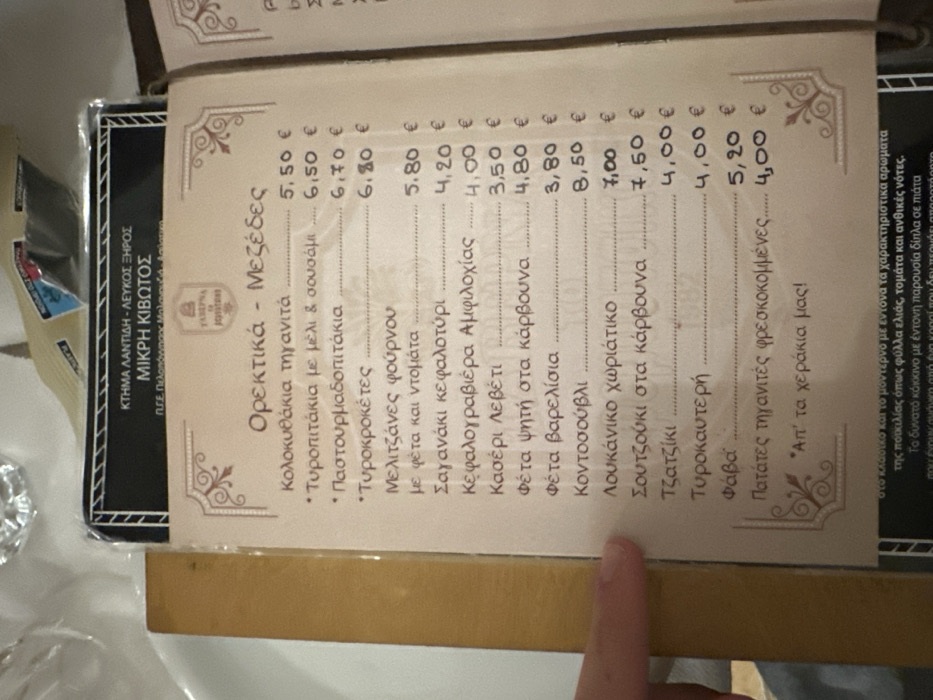 Ορεκτικά - Μεζέδες
Κολοκυθάκια τηγανιτά 5,50 €
*Τυροπιτάκια με μέλι & σουσάμι 6,50 €
*Παστουρμαδοπιτάκια 6,70 €
*Τυροκροκέτες 6,80 €
Μελιτζάνες φούρνου
με φέτα και ντομάτα 5,80 €
Σαγανάκι κεφαλοτύρι 4,20 €
Κεφαλογραβιέρα Αμφιλοχίας 4,00 €
Κασέρι λεβέτι 3,50 €
Φέτα ψητή στα κάρβουνα 4,80 €
Φέτα βαρελίσια 3,80 €
Κοντοσούβλι 8,50 €
Λουκάνικο χωριάτικο 7,00 €
Σουτζούκι στα κάρβουνα 7,50 €
Τζατζίκι 4,00 €
Τυροκαυτερή 4,00 €
Φάβα 5,20 €
Πατάτες τηγανιτές φρεσκοκομμένες 4,00 €
*Απ' τα χεράκια μας!
ΚΤΗΜΑ ΛΑΝΤΙΔΗ - ΛΕΥΚΟΣ ΞΗΡΟΣ
ΜΙΚΡΗ ΚΙΒΩΤΟΣ
της ποικιλίας όπως φύλλα ελιάς, τομάτα και ανθικές νότες.
Το δυνατό κόκκινο με έντονη παρουσία δίπλα σε πιάτα